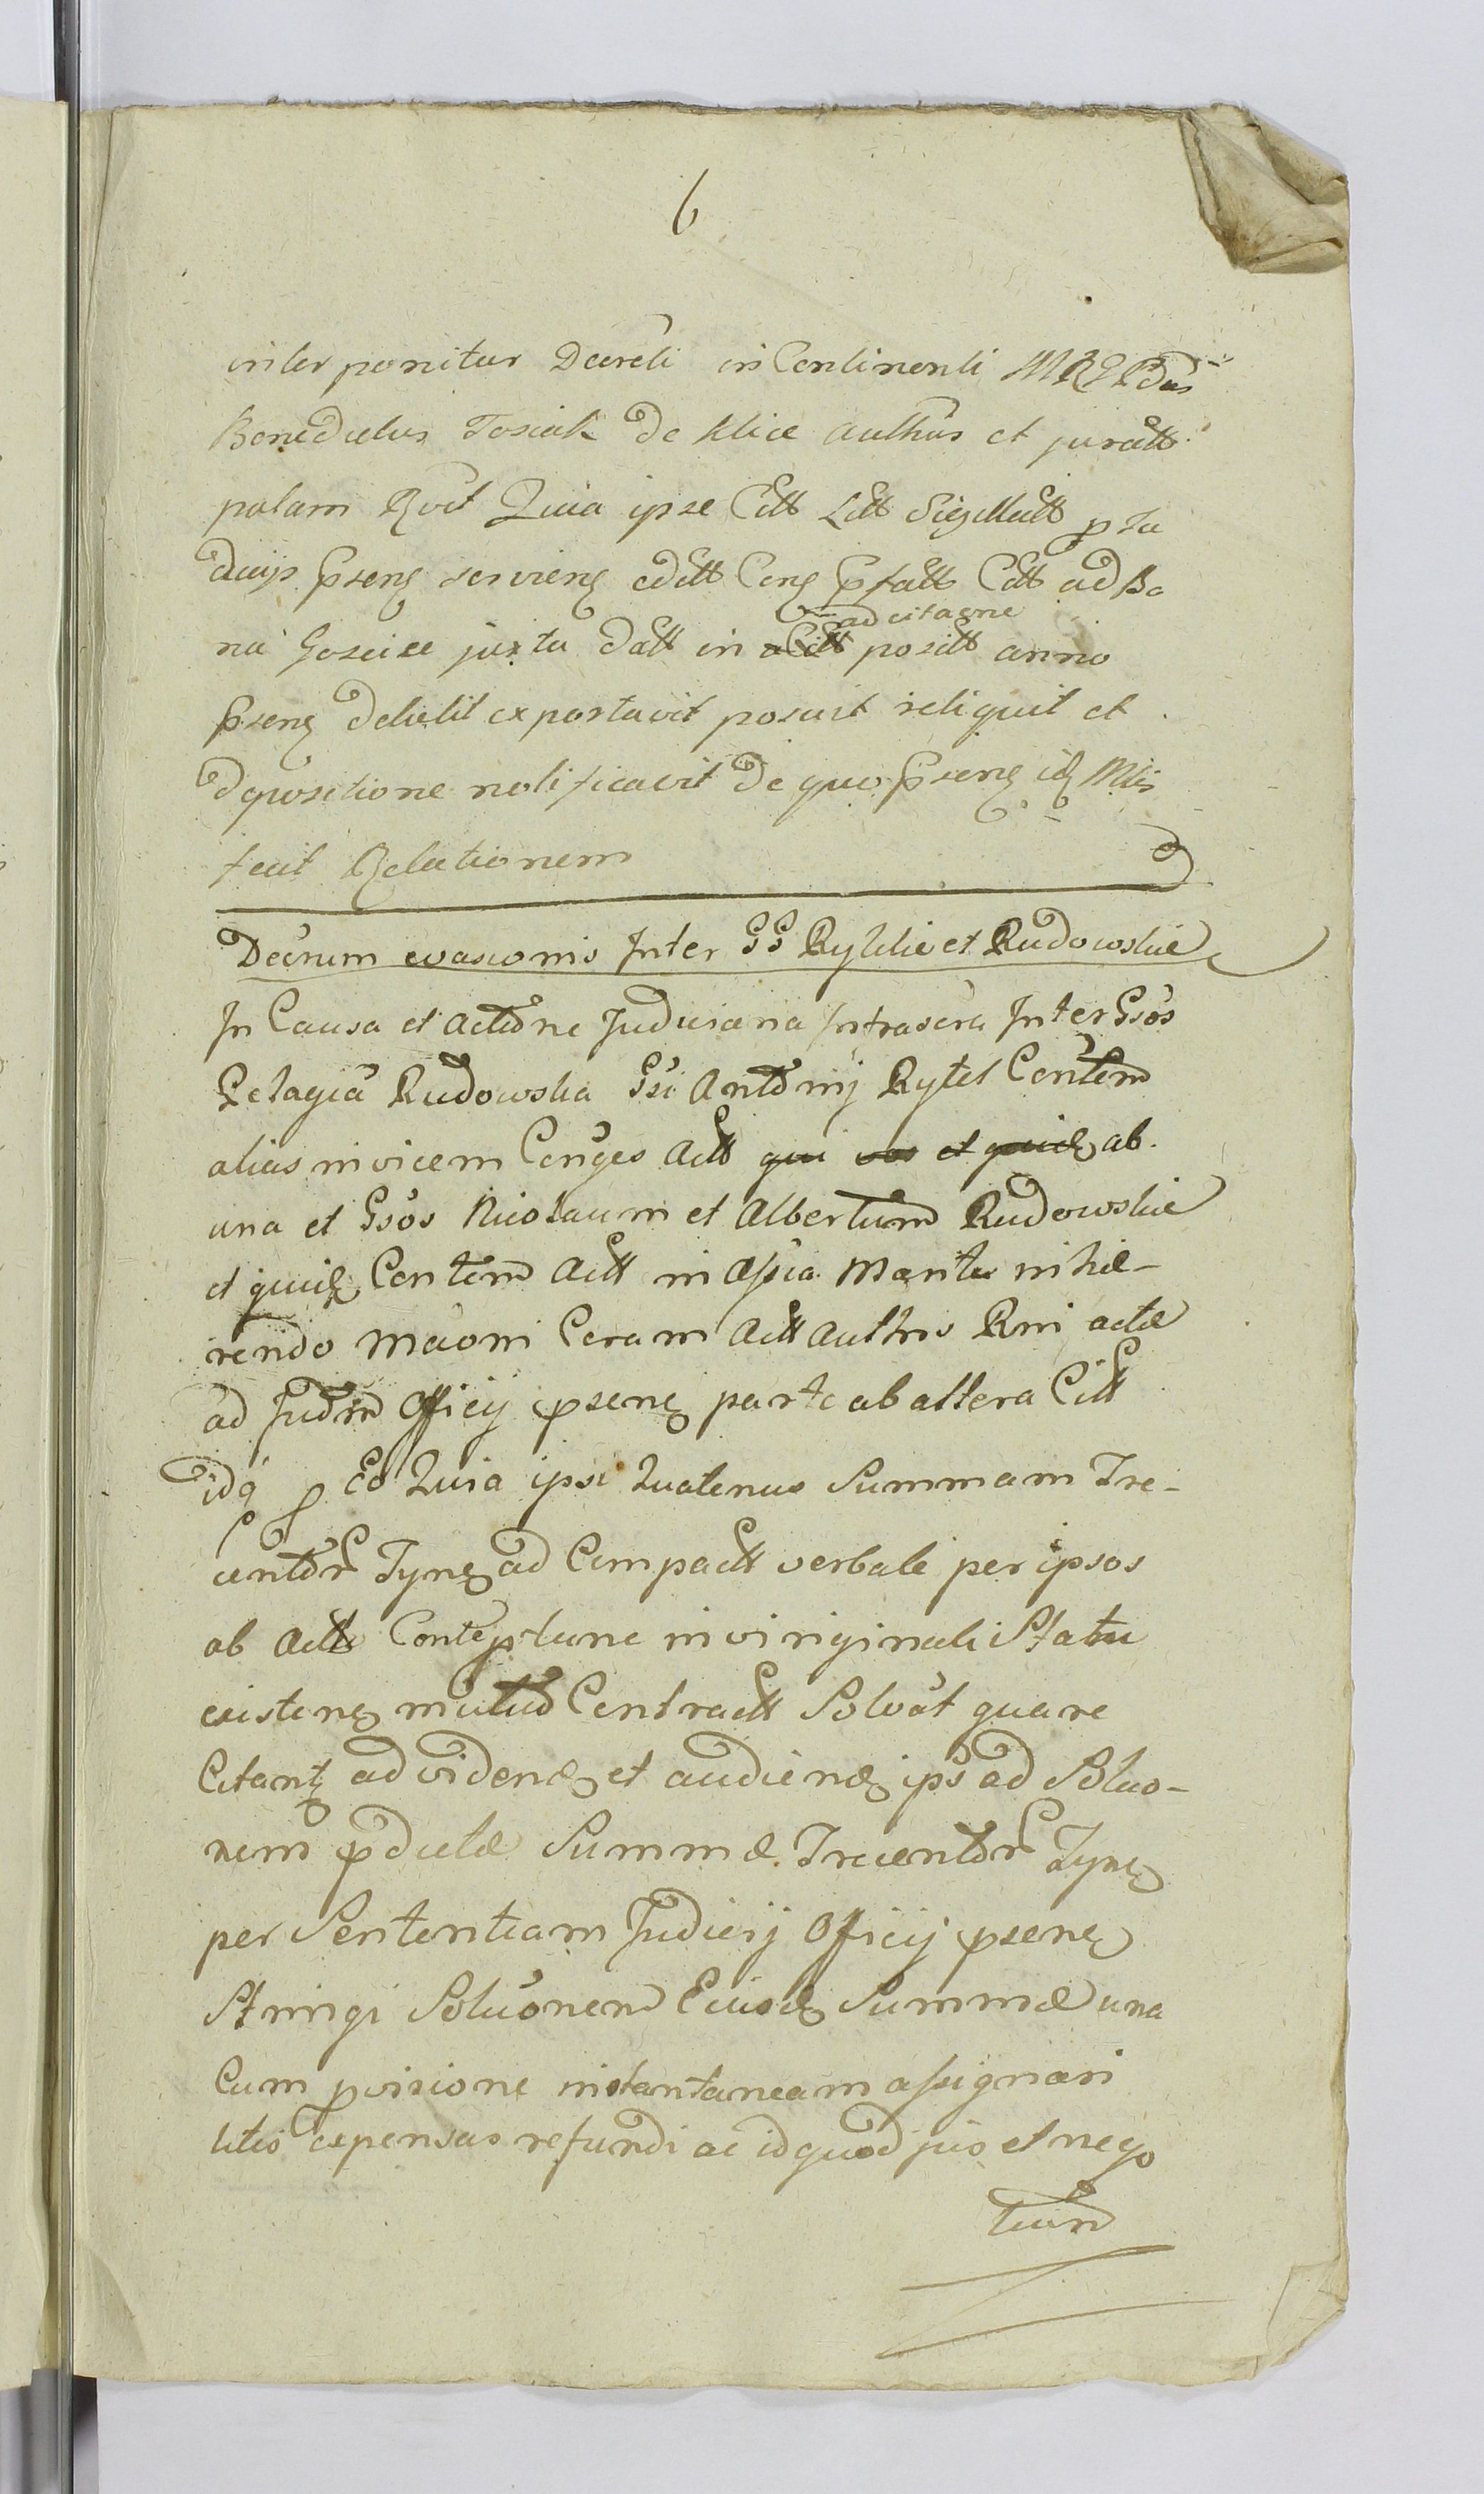 6
interponitur Decreti in Continenti MRGRdus
Benedictus Tosiak de Klice authus et juratt
palam Rvit Quia ipse Citt Litt Sigillatt p Ju
dicijs psenz servienz editt Conz pfatt Citt ad Bo
na Goscice juxta datt in Citt adcitaōne positt anno
psenz detulit exportavit posuit reliquit et
depositione notificavit de quo psenz idz Mlis
fecit Relationem
Decrum evasionis Inter GG Rytelie et Rudowskie
In Causa et actione Judiciaria Infrascra Inter Gsos
Pelagia Rudowska Gsi Antonij Rytel Contem
alias invicem Conges Actt qui et quidz ab
una et Gsos Nicolaum et Albertum Rudowskie
et quidz Contem Actt in assia Mariti inhæ-
rendo maōni Coram Actt authis Rni actæ
ad Judm Officij psenz parte ab altera Citt
idq p Eo Quia ipsi Quatenus Summam Tre-
centor Tynz ad Compactt verbale per ipsos
ab Actt tunc in virginali Statu
existenz mutuo Contractt Solvat quare
Citantz ad videndz et audiendz ips ad Soluo-
nem pdictæ Summæ Trecentor Tynz
per Sententiam Judicij Officij psenz
Stringi Soluonem Eiusdz Summæ una
Cum pvisione instantaneam assignari
litis expensas refundi ac id quod jus et nego
tium